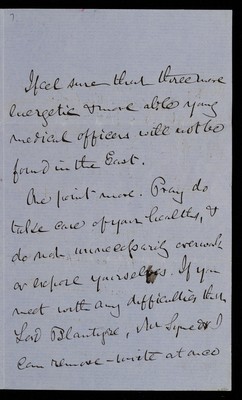 7
I feel sure that three more
energetic & more able young
medical officers will not be
found in the East.
One point more. Pray do
take care of your healths, &
do not unnecessarily overwork
or expose yourselves. If you
meet with any difficulties that
Lord Blantyre, Mr & I
can remove – write at once